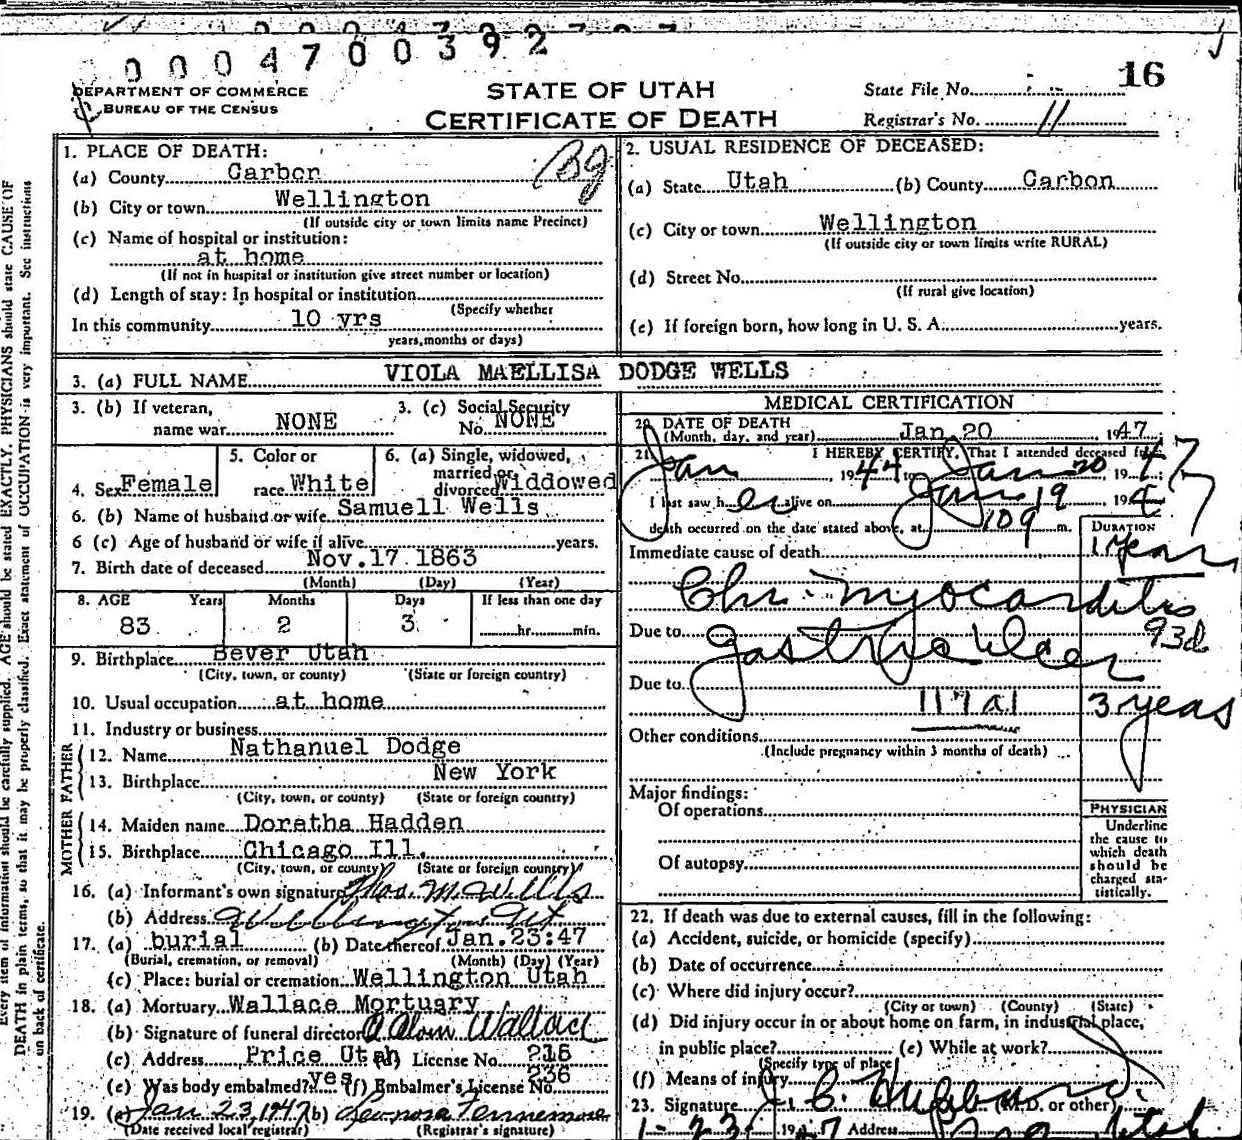 0 0 0 4 7 0 0 3 9 2
16
DEPARTMENT OF COMMERCE
BUREAU OF THE CENSUS
STATE OF UTAH
CERTIFICATE OF DEATH
State File No.
Registrar's No. 11
1. PLACE OF DEATH:
(a) County Carbon
(b) City or town Wellington
(If outside city or town limits name Precinct)
(c) Name of hospital or institution:
at home
(If not in hospital or institution give street number or location)
(d) Length of stay: In hospital or institution
(Specify whether
In this community 10 yrs
years, months or days)
2. USUAL RESIDENCE OF DECEASED:
(a) State Utah (b) County Carbon
(c) City or town Wellington
(If outside city or town limits write RURAL)
(d) Street No.
(If rural give location)
(e) If foreign born, how long in U. S. A. years.
3. (a) FULL NAME VIOLA MAELLISA DODGE WELLS
3. (b) If veteran, name war NONE
3. (c) Social Security No. NONE
4. Sex Female
5. Color or race White
6. (a) Single, widowed, married or divorced Widdowed
6. (b) Name of husband or wife Samuell Wells
6 (c) Age of husband or wife if alive years.
7. Birth date of deceased Nov.17 1863
(Month) (Day) (Year)
8. AGE Years Months Days If less than one day
83 2 3 hr. min.
9. Birthplace Bever Utah
(City, town, or county) (State or foreign country)
10. Usual occupation at home
11. Industry or business
FATHER
12. Name Nathanuel Dodge
13. Birthplace New York
(City, town, or county) (State or foreign country)
MOTHER
14. Maiden name Doretha Hadden
15. Birthplace Chicago Ill.
(City, town, or county) (State or foreign country)
16. (a) Informant's own signature Thos. M. Wells
(b) Address Wellington Ut
17. (a) burial (b) Date thereof Jan.23:47
(Burial, cremation, or removal) (Month) (Day) (Year)
(c) Place: burial or cremation Wellington Utah
18. (a) Mortuary Wallace Mortuary
(b) Signature of funeral director Wallace
(c) Address Price Utah (d) License No.
(e) Was body embalmed? yes (f) Embalmer's License No. 236
19. (a) Jan 23, 1947 (b) Leonora Fennemore
(Date received local registrar) (Registrar's signature)
MEDICAL CERTIFICATION
20. DATE OF DEATH
(Month, day, and year) Jan 20 , 1947
21. I HEREBY CERTIFY, That I attended deceased from
Jan 1944 to Jan 20 1947
I last saw her alive on Jan 19 1947
death occurred on the date stated above, at 109 m.
DURATION
Immediate cause of death 1 year
Chr. Myocarditis
93d
Due to Gastric Ulcer
Due to 117a1 3 years
Other conditions
(Include pregnancy within 3 months of death)
Major findings:
Of operations
Of autopsy
PHYSICIAN
Underline
the cause to
which death
should be
charged sta-
tistically.
22. If death was due to external causes, fill in the following:
(a) Accident, suicide, or homicide (specify)
(b) Date of occurrence
(c) Where did injury occur?
(City or town) (County) (State)
(d) Did injury occur in or about home on farm, in industrial place,
in public place? (e) While at work?
(Specify type of place)
(f) Means of injury
23. Signature J. C. Hubbard (M.D. or other)
1-23 1947 Address Utah
Every item of information should be carefully supplied. AGE should be stated EXACTLY. PHYSICIANS should state CAUSE OF
DEATH in plain terms, so that it may be properly classified. Exact statement of OCCUPATION is very important. See instructions
on back of certificate.